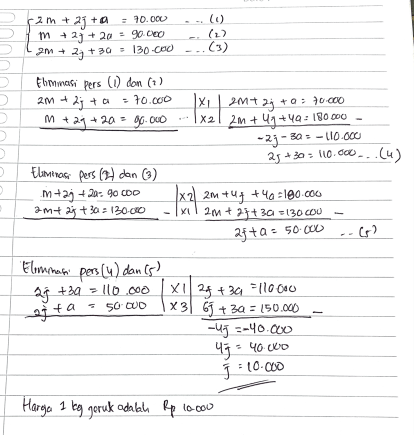 2m + 2j + a = 70.000 ... (1)
m + 2j + 2a = 90.000 ... (2)
2m + 2j + 3a = 130.000 ... (3)
Eliminasi pers (1) dan (2)
2m + 2j + a = 70.000 |x1| 2m + 2j + a = 70.000
m + 2j + 2a = 90.000 |x2| 2m + 4j + 4a = 180.000 -
-2j - 3a = -110.000
2j + 3a = 110.000 ... (4)
Eliminasi pers (2) dan (3)
m + 2j + 2a = 90.000 |x2| 2m + 4j + 4a = 180.000
2m + 2j + 3a = 130.000 - |x1| 2m + 2j + 3a = 130.000 -
2j + a = 50.000 ... (5)
Eliminasi pers (4) dan (5)
2j + 3a = 110.000 |x1| 2j + 3a = 110.000
2j + a = 50.000 |x3| 6j + 3a = 150.000 -
-4j = -40.000
4j = 40.000
j = 10.000
Harga 1 kg jeruk adalah Rp 10.000